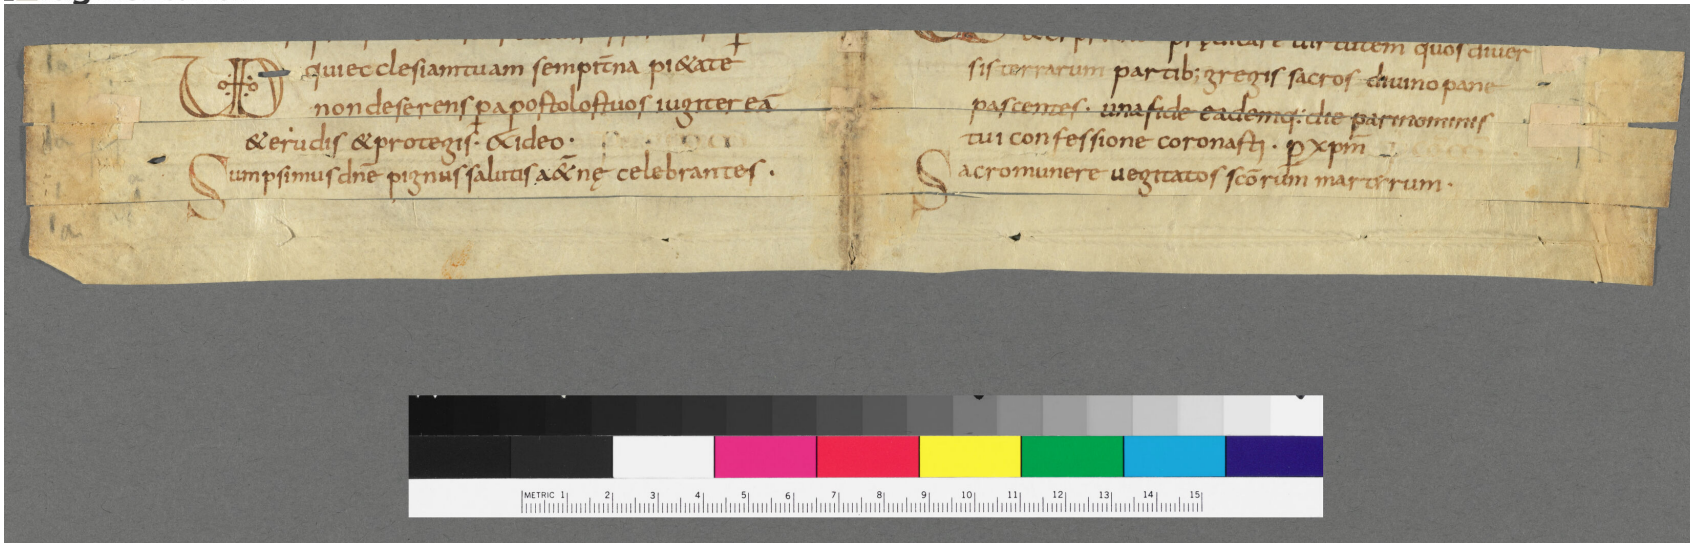 qui ecclesiam tuam sempit̄na pi&ate
non deserens p̱ apostolos tuos iugiter eā
&erudis &protegis· &ideo·
Sumpsimus dn̄e pignus salutis a&̄nę celebrantes·
quos diver
sis terrarum partib; gregis sacros divino pane
pascentes· una fide eademq; die pari nominis
tui confessione coronasti· p̱ xp̄m
Sacro munere vegitatos sc̄orum martyrum·
METRIC 1 2 3 4 5 6 7 8 9 10 11 12 13 14 15